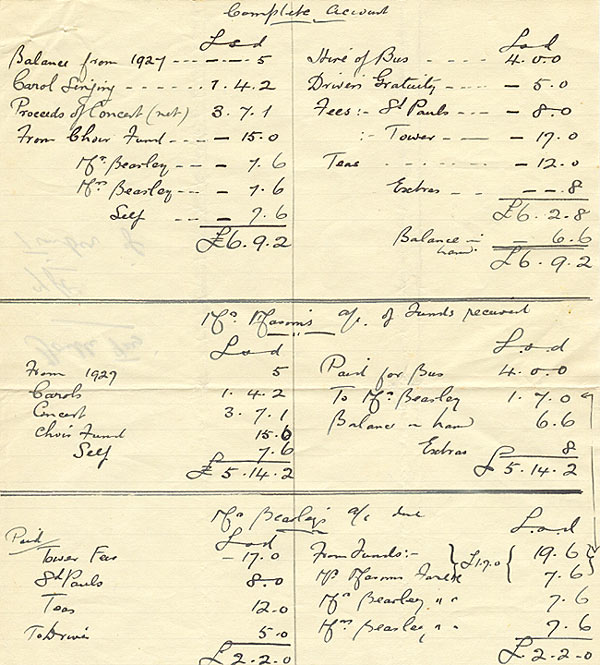 Complete Account
L s d
Balance from 1927 - - - - - 5
Carol Singing - - - - - - 1.4.2
Proceeds of Concert (net) 3.7.1
From Choir Fund - - - - 15.0
Mr Beasley - - - - 7.6
Mrs Beasley - - - - 7.6
Self - - - - 7.6
£6.9.2
L s d
Hire of Bus - - - 4.0.0
Drivers Gratuity - - - - 5.0
Fees :- St Pauls - - - - 8.0
:- Tower - - - - 17.0
Teas - - - - - - - 12.0
Extras - - - - - .8
£6.2.8
Balance in hand - 6.6
£6.9.2
Mr Mason's a/c of Funds received
L s d
From 1927 5
Carols 1.4.2
Concert 3.7.1
Choir Fund 15.0
Self 7.6
£5.14.2
L s d
Paid for Bus 4.0.0
To Mr Beasley 1.7.0
Balance in hand 6.6
Extras 8
£5.14.2
Mr Beasley's a/c due
Paid L s d
Tower Fees - 17.0
St Pauls 8.0
Teas 12.0
To Driver 5.0
£2.2.0
L.s.d
From Funds :- } £1.7.0 { 19.6
Mr Masons 7.6
Mr Beasley " " 7.6
Mrs Beasley " " 7.6
£2.2.0